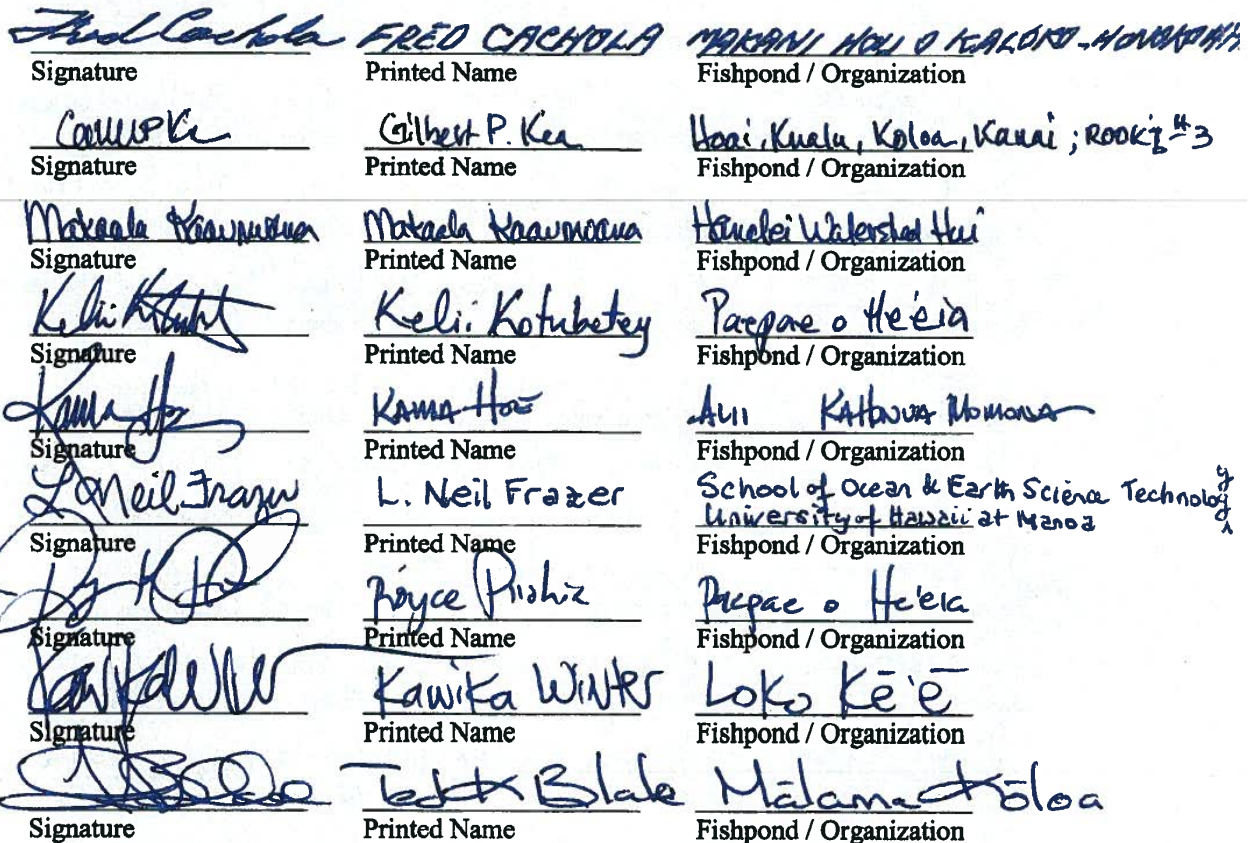 Fred Cachola FRED CACHOLA MAKANI HOU O KALOKO-HONOKOHAU
Signature Printed Name Fishpond / Organization
Gilbert P. Kea Hoai, Kualu, Koloa, Kauai; #3
Signature Printed Name Fishpond / Organization
Makaala Kaaumoana Makaala Kaaumoana Hanalei Watershed Hui
Signature Printed Name Fishpond / Organization
Keli'i Kotubetey Paepae o He'eia
Signature Printed Name Fishpond / Organization
KAMA HOE
Signature Printed Name Fishpond / Organization
L Neil Frazer L. Neil Frazer School of Ocean & Earth Science Technology
University of Hawaii at Manoa
Signature Printed Name Fishpond / Organization
Royce Paepae o He'eia
Signature Printed Name Fishpond / Organization
Kawika WiNtER Loko Kē'ē
Signature Printed Name Fishpond / Organization
Ted K Blake Mālama Kōloa
Signature Printed Name Fishpond / Organization